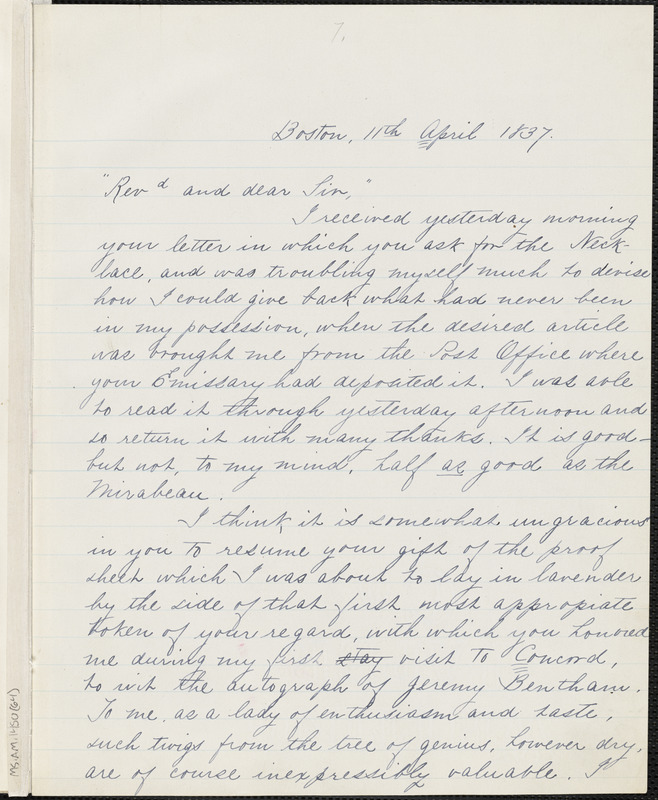 7.
Boston, 11th April 1837.
"Revd and dear Sir,"
I received yesterday morning
your letter in which you ask for the Neck-
lace, and was troubling myself much to devise
how I could give back what had never been
in my possession, when the desired article
was brought me from the Post Office where
your Emissary had deposited it. I was able
to read it through yesterday afternoon and
so return it with many thanks. It is good—
but not, to my mind, half as good as the
Mirabeau.
I think, it is somewhat ungracious
in you to resume your gift of the proof
sheet which I was about to lay in lavender
by the side of that first most appropiate
token of your regard, with which you honored
me during my first stay visit to Concord,
to wit the autograph of Jeremy Bentham.
To me, as a lady of enthusiasm and taste,
such twigs from the tree of genius, however dry,
are of course inexpressibly valuable. I
MS.A.M.1450(64)